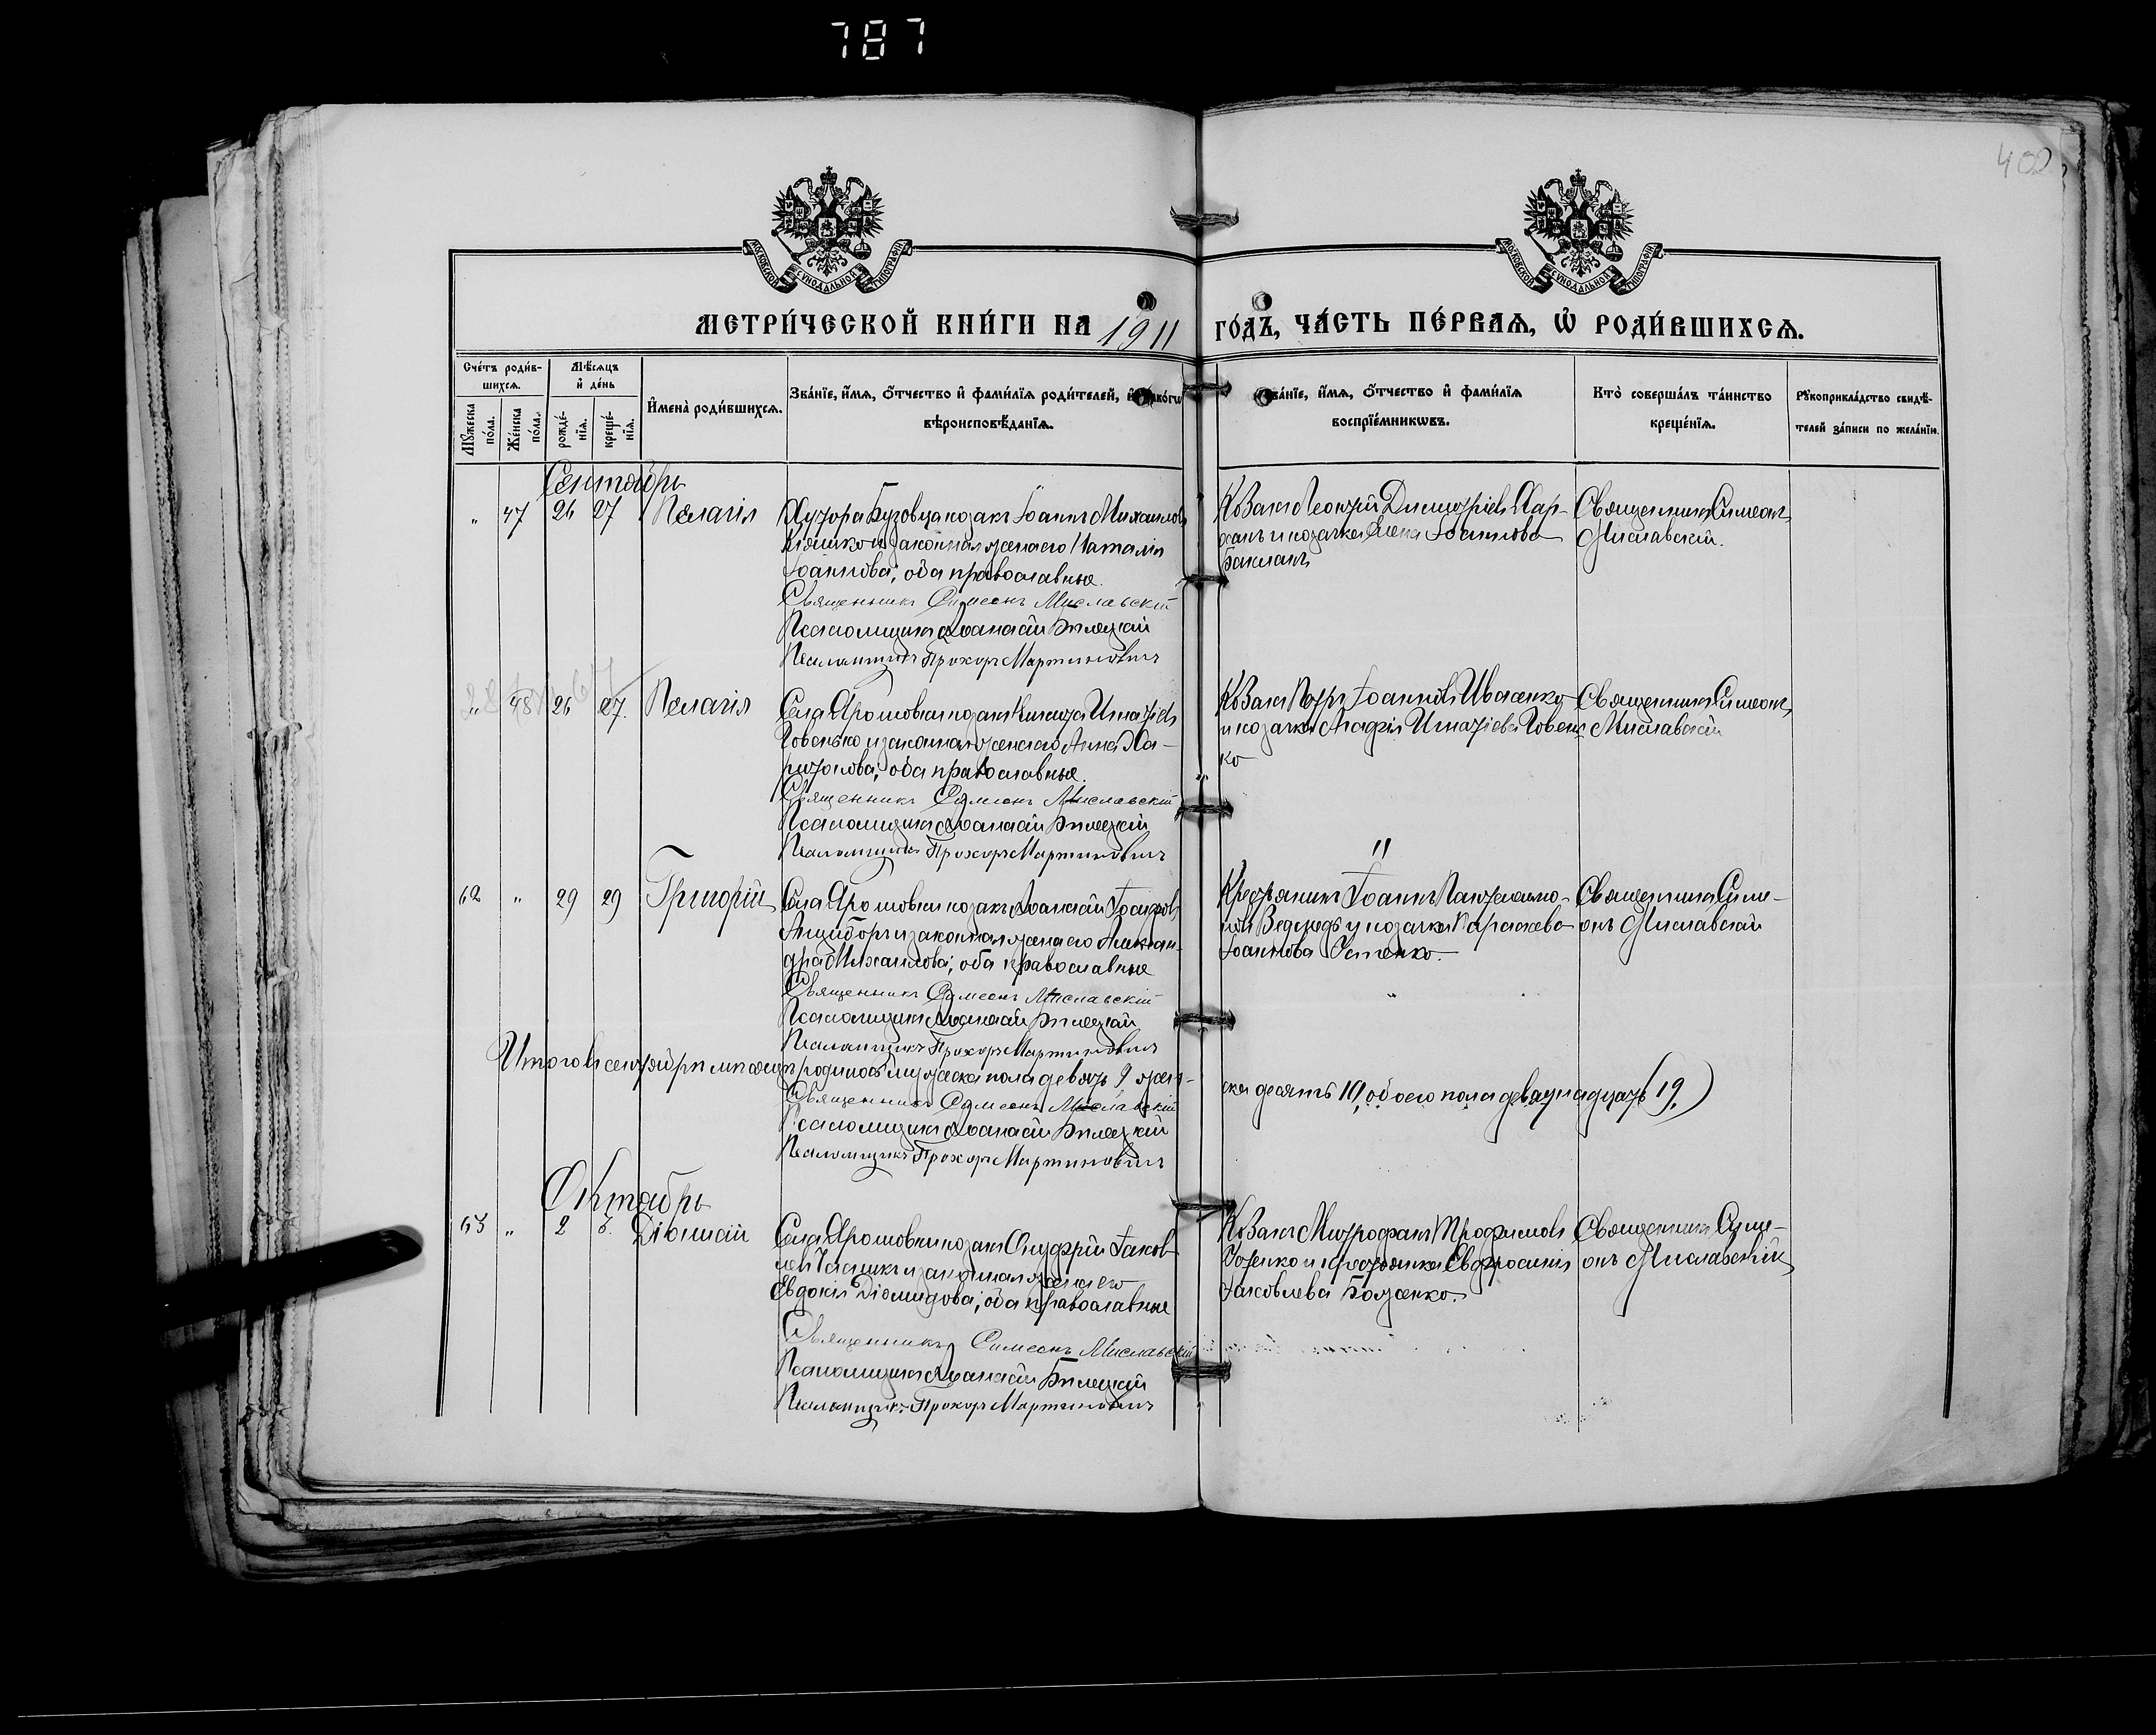 787
402
МОСКОВСКОЙ СѴНОДАЛЬНОЙ ТИПОГРАФІИ
МОСКОВСКОЙ СѴНОДАЛЬНОЙ ТИПОГРАФІИ
МЕТРИ́ЧЕСКОЙ КНИ́ГИ НА 1911 ГО́ДЪ, ЧА́СТЬ ПЕ́РВАЯ, Ѡ҆ РОДИ́ВШИХСЯ.
Сче́тъ роди́в-
шихся.
Мꙋ́жеска по́ла.
Же́нска по́ла.
Мѣ́сяцъ
и҆ де́нь
рожде́-
нїя.
креще́-
нїя.
И҆мена̀ роди́вшихся.
Зва́нїе, и҆́мя, ѻ҆́тчество и҆ фами́лїя роди́телей, и҆
вѣроисповѣ́данїя.
Зва́нїе, и҆́мя, ѻ҆́тчество и҆ фами́лїя
воспрїе́мникωвъ.
Кто̀ соверша́лъ та́инство
креще́нїя.
Рꙋкоприкла́дство свидѣ́-
телей за́писи по жела́нїю.
Сентябрь
" 47 26 27 Пелагія
Хутора Бузовца козакъ Іоаннъ Михаиловъ
и законная жена его Наталія
Іоаннова; оба православные.
Священникъ Симеонъ Миславскій
Псаломщикъ Аѳанасій Билецкій
Псаломщикъ Прохоръ Мартиновичъ
Козакъ Леонтій Димитріевъ Хар-
ханъ и козачка Елена Іоаннова
Баклакъ
Священникъ Симеонъ
Миславскій.
" 48 26 27. Пелагія
Села Ярошовки козакъ Никита Игнатіевъ
Говенько и законная жена его Анна Ха-
ритонова; оба православные.
Священникъ Симеонъ Миславскій
Псаломщикъ Аѳанасій Билецкій
Псаломщикъ Прохоръ Мартиновичъ
Козакъ Петръ Іоанновъ Ивасенко
и козачка Марія Игнатіева Говень-
ко
Священникъ Симеонъ
Миславскій
62 " 29 29 Григорій
Села Ярошовки козакъ Аѳанасій Іосифовъ
Анциборъ и законная жена его Алексан-
дра Михаилова; оба православные
Священникъ Симеонъ Миславскій
Псаломщикъ Аѳанасій Билецкій
Псаломщикъ Прохоръ Мартиновичъ
"
Крестьянинъ Іоаннъ Пантелеимо-
новъ Ведмедь и козачка Параскева
Іоаннова Устенко.
Священникъ Симе-
онъ Миславскій
Итого въ сентябрѣ мѣсяцѣ родилось мужеска пола девять 9 жен-
ска десять 10, обоего пола девятнадцать (19.)
Священникъ Симеонъ Миславскій
Псаломщикъ Аѳанасій Билецкій
Псаломщикъ Прохоръ Мартиновичъ
Октябрь
63 " 2 Діомидъ
Села Ярошовки козакъ Онуфрій Іаков-
левъ и законная жена его
Евдокія Діомидова; оба православные
Священникъ Симеонъ Миславскій
Псаломщикъ Аѳанасій Билецкій
Псаломщикъ Прохоръ Мартиновичъ
Козакъ Митрофанъ Трофимовъ
и крестьянка Евфросинія
Іаковлева Боженко.
Священникъ Симе-
онъ Миславскій